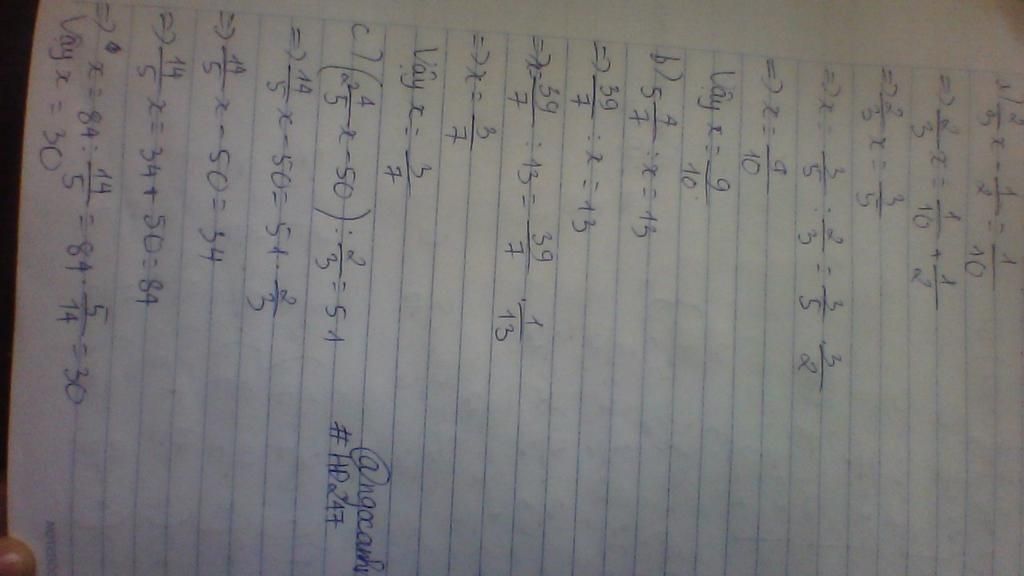 a) 2/3 x - 1/2 = 1/10
=> 2/3 x = 1/10 + 1/2
=> 2/3 x = 3/5
=> x = 3/5 : 2/3 = 3/5 . 3/2
=> x = 9/10
Vậy x = 9/10.
b) 5 4/7 : x = 13
=> 39/7 : x = 13
=> x = 39/7 : 13 = 39/7 . 1/13
=> x = 3/7
Vậy x = 3/7
c) (2 4/5 x - 50) : 2/3 = 51
=> 14/5 x - 50 = 51 . 2/3
=> 14/5 x - 50 = 34
=> 14/5 x = 34 + 50 = 84
=> x = 84 : 14/5 = 84 . 5/14 = 30
Vậy x = 30
@ngocanh
#HD247